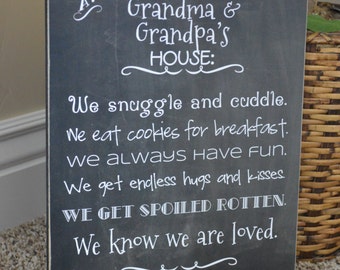 Grandma &
Grandpa's
HOUSE:
We snuggle and cuddle.
We eat cookies for breakfast.
We always have fun.
We get endless hugs and kisses.
WE GET SPOILED ROTTEN.
We know we are loved.